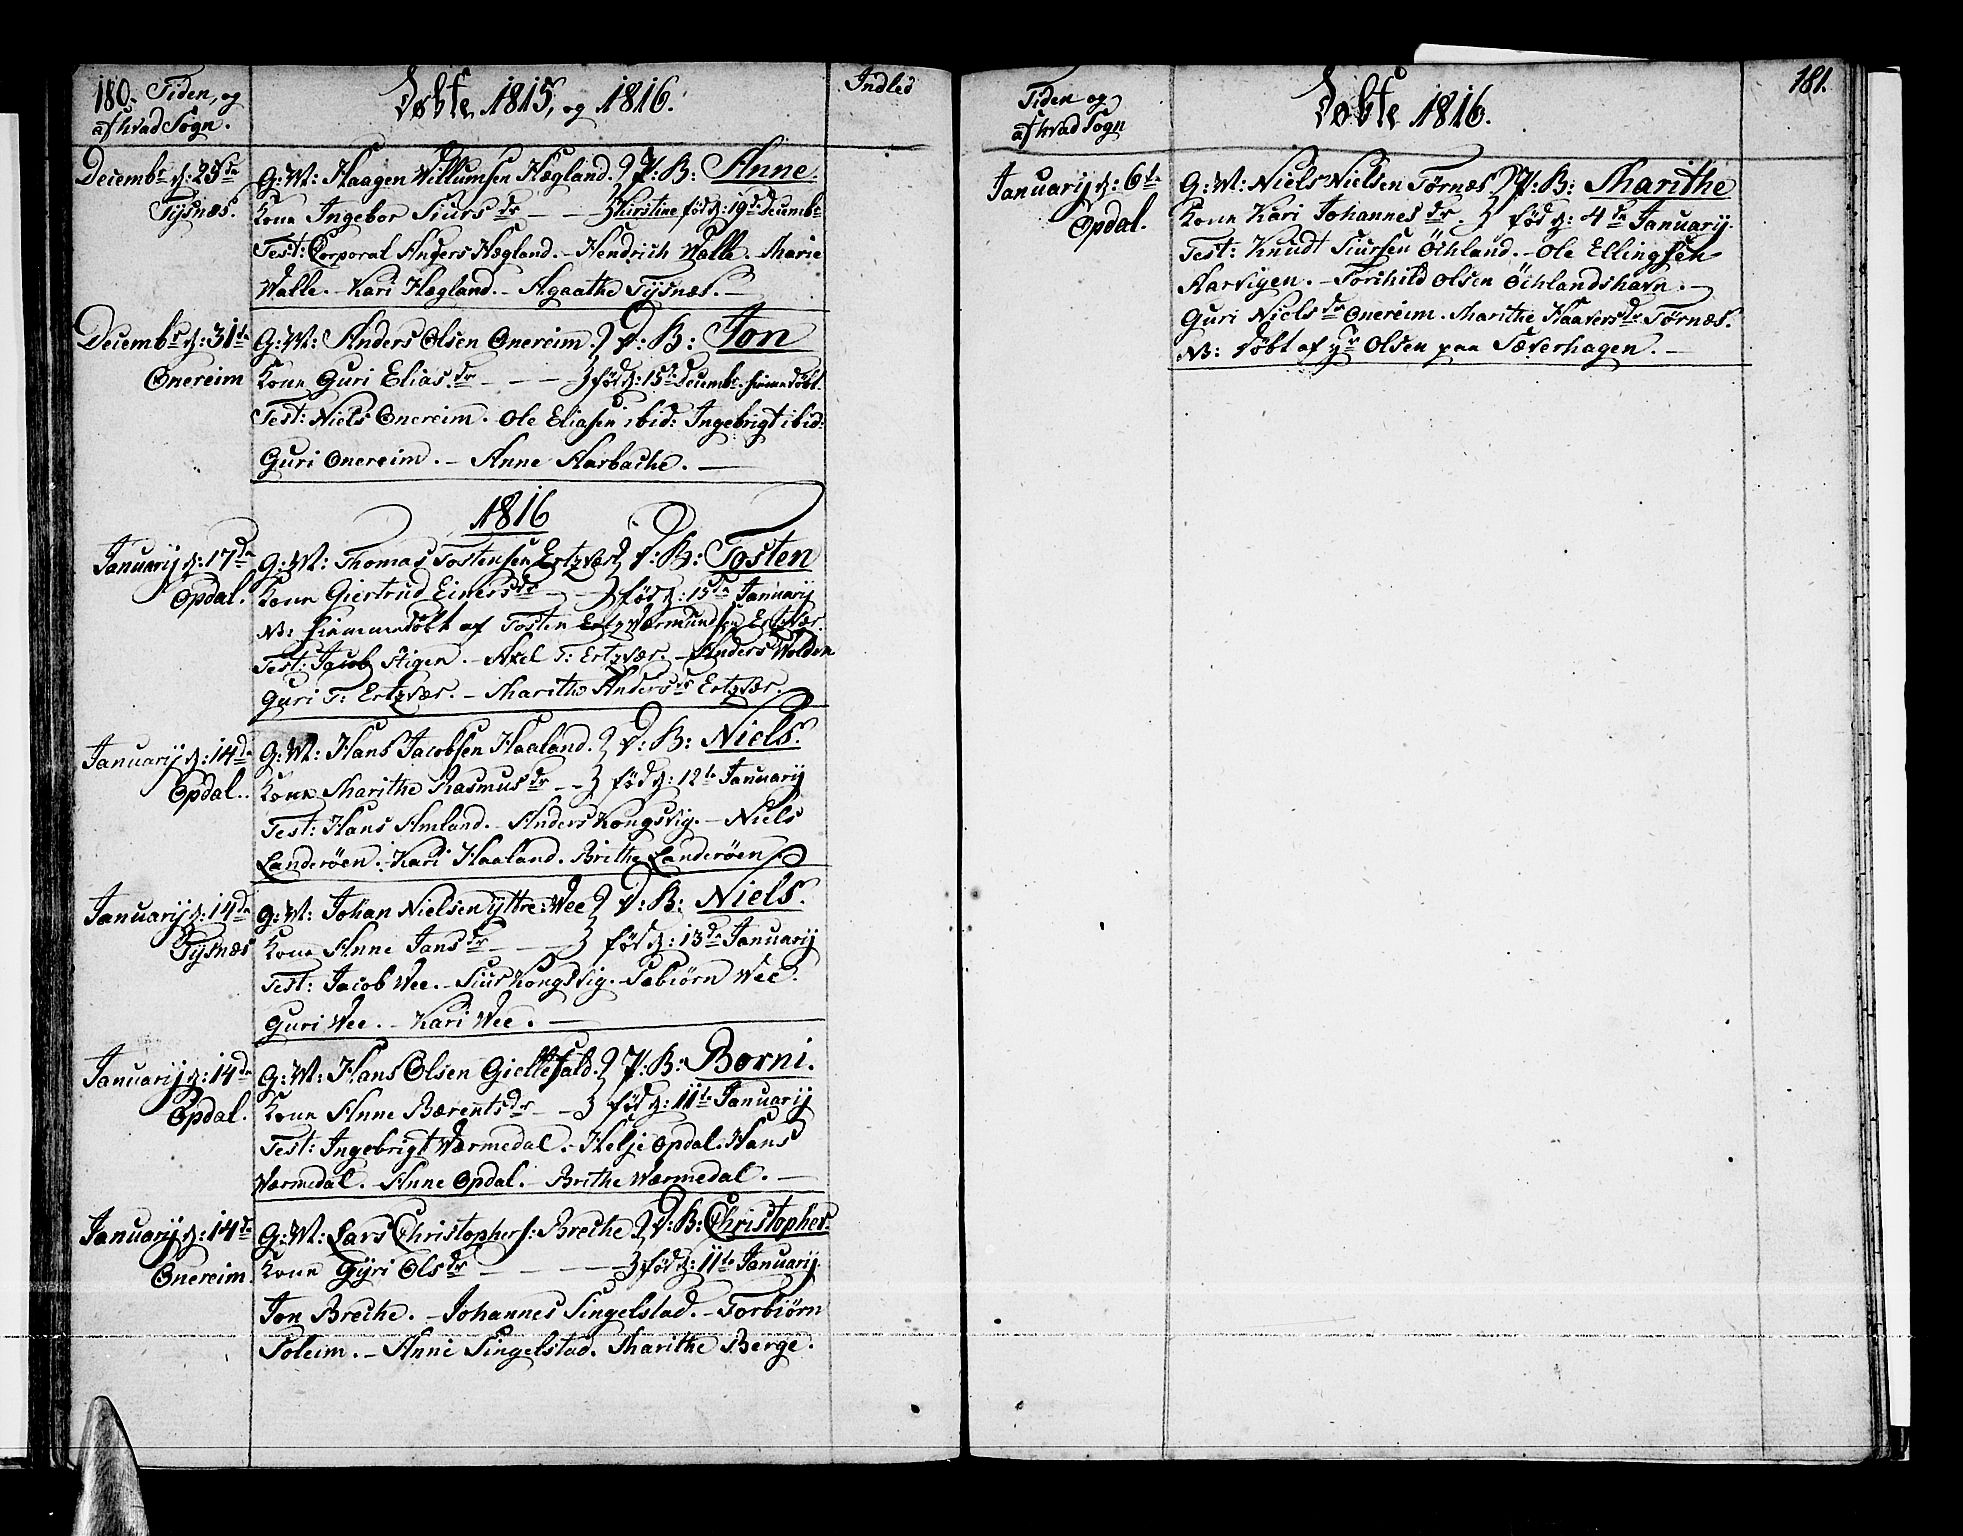 180. Tiden, og
af hvad Sogn.
Døbte 1815, og 1816.
Indled
Decembr d: 25de
Tysnæs.
G: M: Haagen Willumsen Hegland. P: B: Anne
Kone Ingebor Siurs dr Kirstine fød d: 19de Decembr
Test: Corporal Anders Hegland. - Hendrich Walle. Marie
Walle. - Kari Hegland. - Agaathe Tysnæs. -
Decembr d: 31te
Onereim
G: M: Anders Olsen Onereim. D: B: Jon
Kone Guri Elias dr fød d: 15de Decembr hiemmedøbt.
Test: Niels Onereim. Ole Eliasen ibid: Ingebrigt ibid:
Guri Onereim. - Anne Aarbache. -
1816
Januarij d: 17de
Opdal.
G: M: Thomas Tostensen Ertzvær D: B: Tosten
Kone Giertrud Einers dr fød d: 15de Januarij
NB: hiemmedøbt af Tosten Wermundsen Ertzvær.
Test: Jacob Stigen. - Axel T: Ertzvær. - Anders Wolden
Guri T: Ertzvær. - Marithe Anders dr Ertzvær.
Januarij d: 14de
Opdal.
G: M: Hans Jacobsen Haaland. D: B: Niels.
Kone Marithe Rasmus dr fød d: 12te Januarij
Test: Hans Amland. - Anders Kongsvig. - Niels
Landerøen. - Kari Haaland. Brithe Landerøen.
Januarij d: 14de
Tysnæs
G: M: Johan Nielsen yttre: Wee D: B: Niels.
Kone Anne Jans dr fød d: 13de Januarij
Test: Jacob Wee. - Siur Kongsvig. - Sebiørn Wee.
Guri Wee. - Kari Wee. -
Januarij d: 14de
Opdal.
G: M: Hans Olsen Giellefald. P: B: Borni.
Kone Anne Bærents dr fød d: 11te Januarij
Test: Ingebrigt Wærmedal. - Helje Opdal. Hans
Wærmedal. - Anne Opdal. - Brithe Wærmedal. -
Januarij d: 14de
Onereim
G: M: Lars Christophers: Breche D: B: Christopher.
Kone Gyri Ols dr fød d: 11te Januarij.
Jon Breche. - Johannes Singelstad. - Torbiørn
Soleim. - Anne Singelstad. Marithe Berge.
Tiden og
af hvad Sogn
Døbte 1816.
181.
Januarij d: 6te
Opdal.
G: M: Niels Nielsen Tørnæs. P: B: Marithe
Kone Kari Johannes dr. fød d: 4de Januarij.
Test: Knudt Siursen Öchland. - Ole Ellingsen
Aarvigen. - Torchild Olsen Öchlandshavn. -
Guri Niels dr Onereim. Marithe Haavers dr Tørnæs.
NB: døbt af Hr Olsen paa Sæverhagen. -